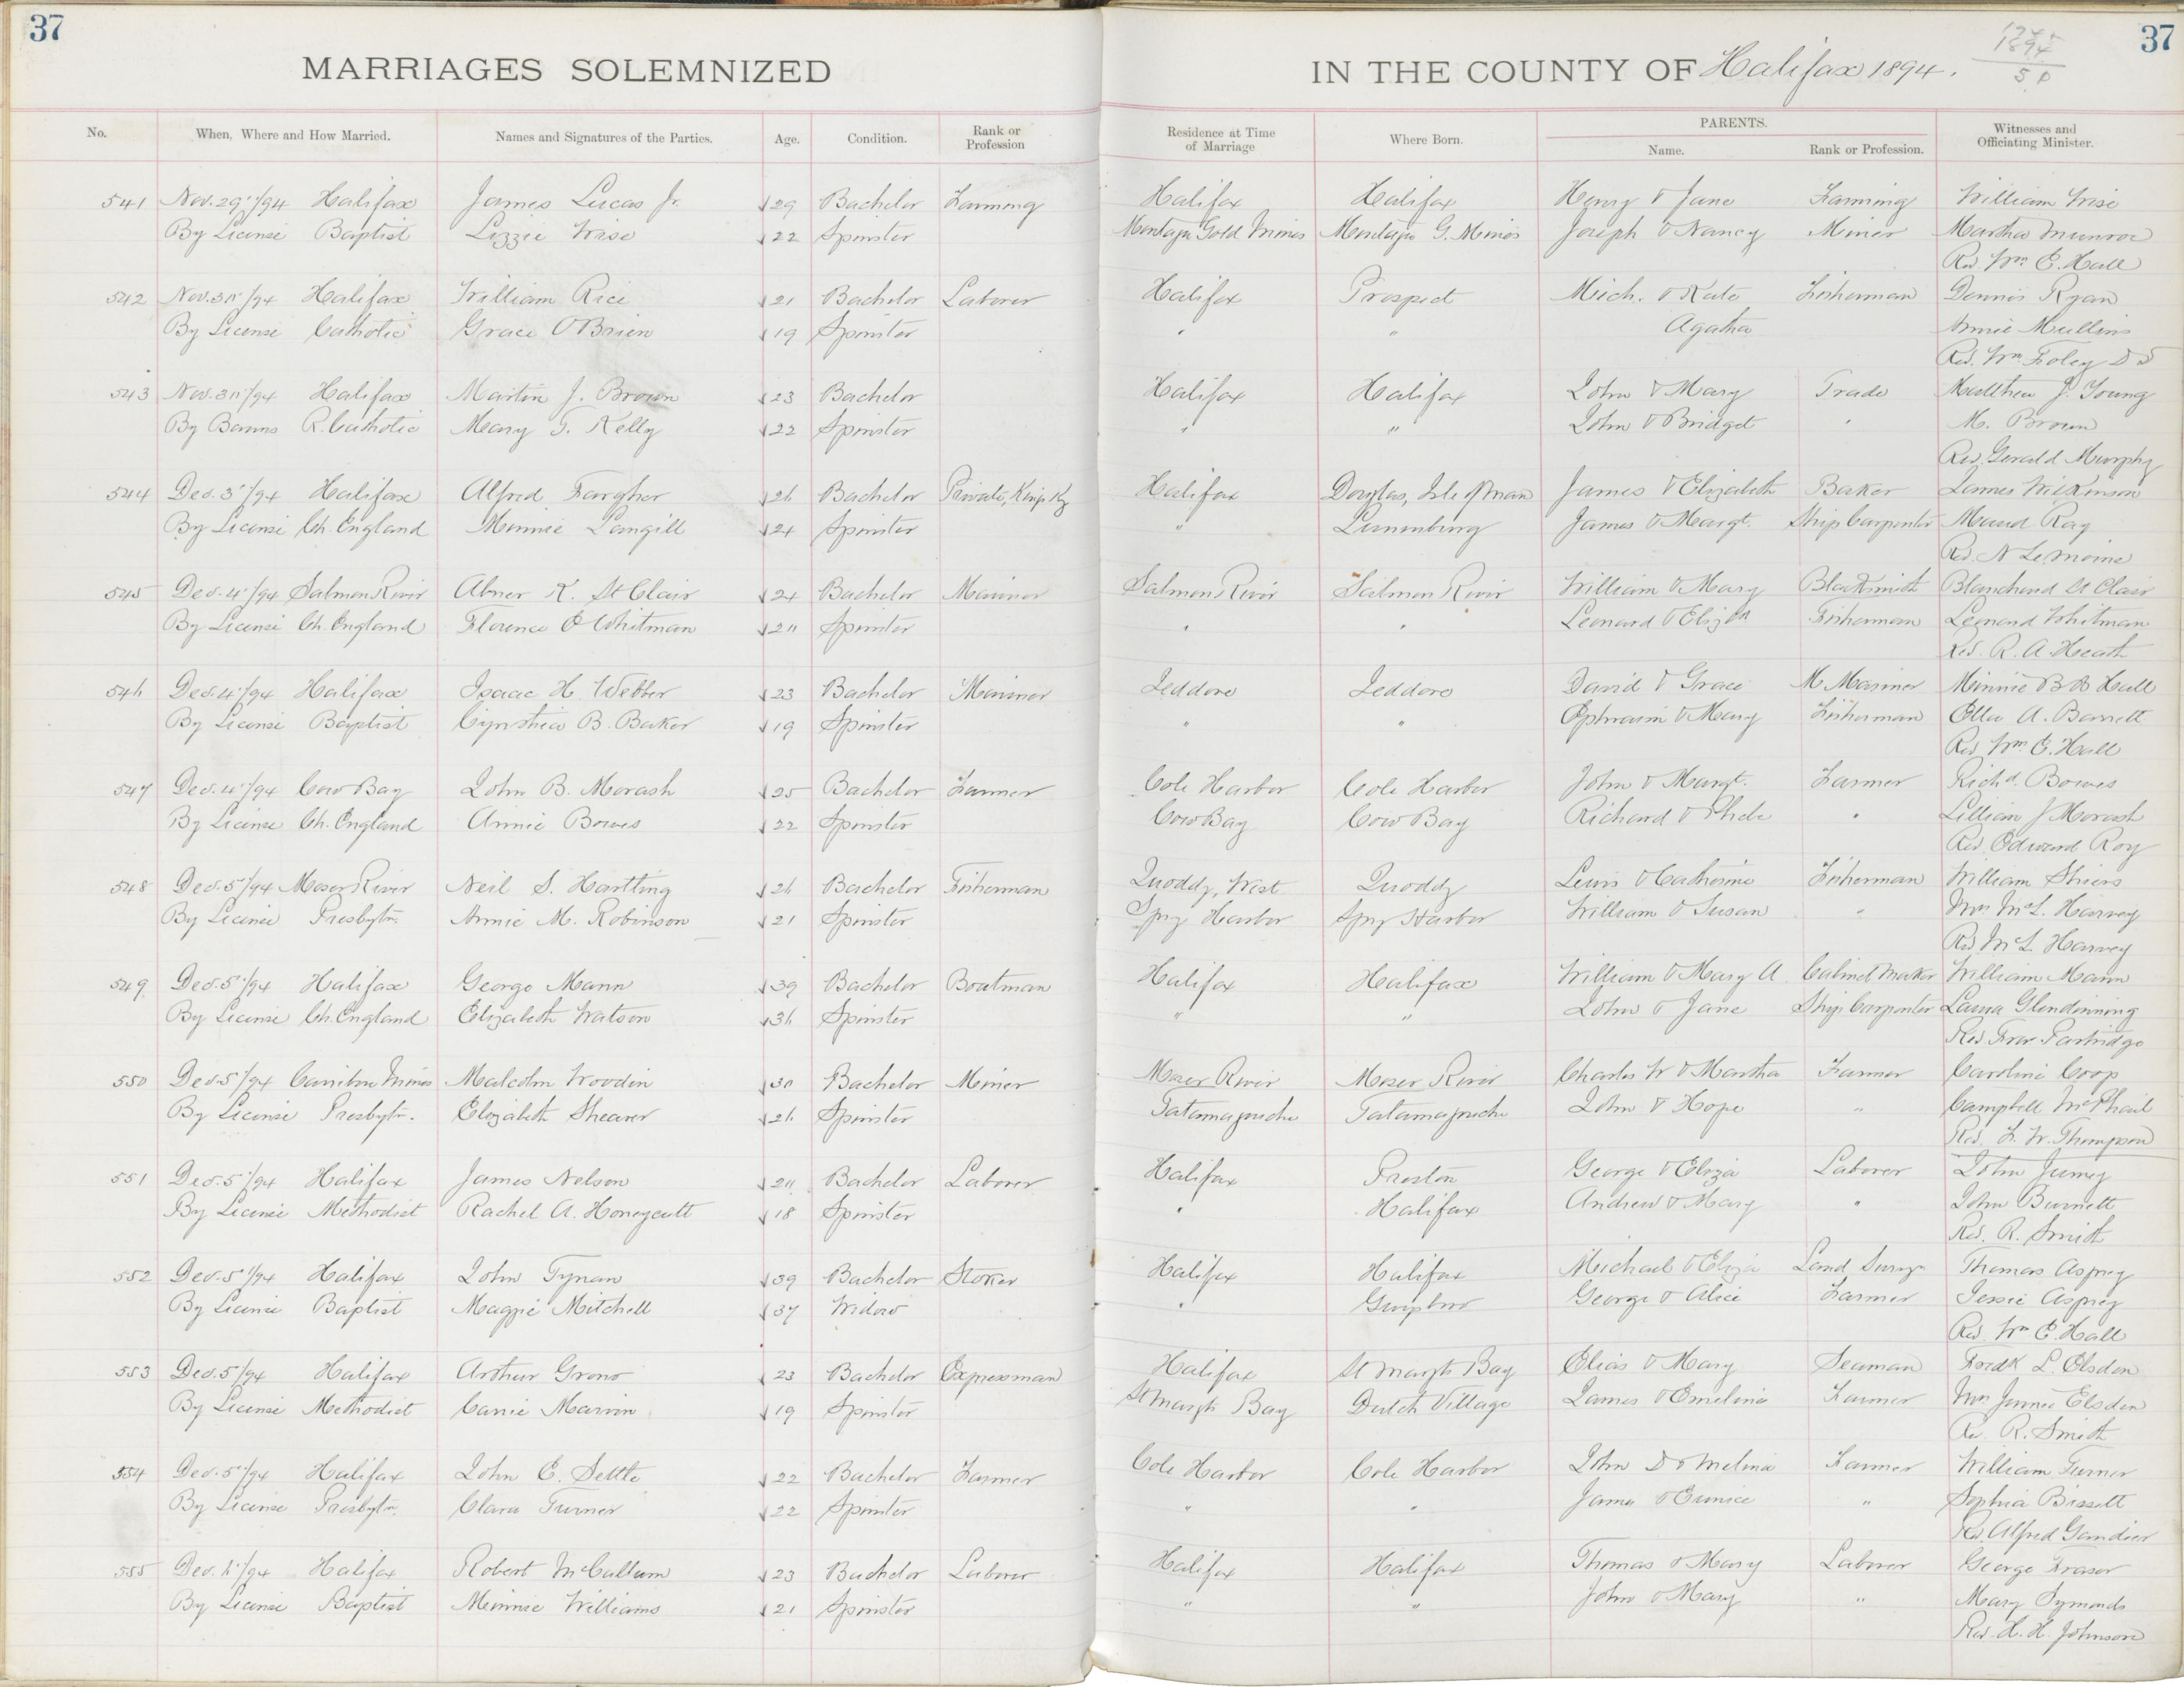 37
37
MARRIAGES SOLEMNIZED
IN THE COUNTY OF Halifax 1894.
1894
50
No. When, Where and How Married. Names and Signatures of the Parties. Age. Condition. Rank or Profession Residence at Time of Marriage Where Born. PARENTS. Name. Rank or Profession. Witnesses and Officiating Minister.
541 Nov. 29/94 Halifax James Lucas Jr. 29 Bachelor Farming Halifax Halifax Henry & Jane Farming William Wise
By License Baptist Lizzie Wise 22 Spinster Montagu Gold Mines Montagu G. Mines Joseph & Nancy Miner Martha Munroe
Rev. Wm E. Hall
542 Nov. 30/94 Halifax William Rice 21 Bachelor Laborer Halifax Prospect Mich. & Kate Fisherman Dennis Ryan
By License Catholic Grace O'Brien 19 Spinster " " Agatha Annie Mullins
Rev. Wm. Foley DD
543 Nov. 30/94 Halifax Martin J. Brown 23 Bachelor Halifax Halifax John & Mary Trade Matthew J. Young
By Banns R. Catholic Mary T. Kelly 22 Spinster " " John & Bridget " M. Brown
Rev. Gerald Murphy
544 Dec. 3/94 Halifax Alfred Fargher 26 Bachelor Private, King's Halifax Douglas, Isle of man James & Elizabeth Baker James Wilkinson
By License Ch. England Minnie Langill 24 Spinster " Lunenburg James & Margt. Ship Carpenter Maud Ray
Rev. N LeMoine
545 Dec. 4/94 Salmon River Abner K. St Clair 24 Bachelor Mariner Salmon River Salmon River William & Mary Blacksmith Blanchard St Clair
By License Ch. England Florence E Whitman 20 Spinster " " Leonard & Elizth Fisherman Leonard Whitman
Rev. R. A. Heath
546 Dec. 4/94 Halifax Isaac H. Webber 23 Bachelor Mariner Jeddore Jeddore David & Grace M. Mariner Minnie B B Hall
By License Baptist Cynthia B. Baker 19 Spinster " " Ephraim & Mary Fisherman Ella A. Barnett
Rev Wm E. Hall
547 Dec. 4/94 Cow Bay John B. Morash 25 Bachelor Farmer Cole Harbor Cole Harbor John & Margt. Farmer Richd. Bowes
By License Ch. England Annie Bowes 22 Spinster Cow Bay Cow Bay Richard & Phebe " Lillian J Morash
Rev Edward Roy
548 Dec. 5/94 Moser River Neil S. Hartling 26 Bachelor Fisherman Quoddy, West Quoddy Lewis & Catherine Fisherman William Shiers
By License Presbytn. Annie M. Robinson 21 Spinster Spry Harbor Spry Harbor William & Susan " Mrs McL. Harvey
Rev McL. Harvey
549 Dec. 5/94 Halifax George Mann 39 Bachelor Boatman Halifax Halifax William & Mary A Cabinet Maker William Mann
By License Ch. England Elizabeth Watson 36 Spinster " " John & Jane Ship Carpenter Laura Glendinning
Rev Fran. Partridge
550 Dec. 5/94 Carribou Mines Malcolm Woodin 30 Bachelor Miner Moser River Moser River Charles W & Martha Farmer Caroline Coop
By License Presbytn. Elizabeth Shearer 26 Spinster Tatamagouche Tatamagouche John & Hope " Campbell McPhail
Rev. F. W. Thompson
551 Dec. 5/94 Halifax James Nelson 20 Bachelor Laborer Halifax Preston George & Eliza Laborer John Jumey
By License Methodist Rachel A. Honeycutt 18 Spinster " Halifax Andrew & Mary " John Burnett
Rev. R. Smith
552 Dec. 5/94 Halifax John Tynan 39 Bachelor Stoker Halifax Halifax Michael & Eliza Land Survyr Thomas Asprey
By License Baptist Maggie Mitchell 37 Widow " Guysboro George & Alice Farmer Jessie Asprey
Rev. Wm E. Hall
553 Dec. 5/94 Halifax Arthur Grono 23 Bachelor Expressman Halifax St Margts Bay Elias & Mary Seaman Fredk L. Elsden
By License Methodist Carrie Marvin 19 Spinster St Margts Bay Dutch Village James & Emeline Farmer Mrs Jennie Elsden
Rev. R. Smith
554 Dec. 5/94 Halifax John E. Settle 22 Bachelor Farmer Cole Harbor Cole Harbor John D & Melina Farmer William Turner
By License Presbytn. Clara Turner 22 Spinster " " James & Eunice " Sophia Bissett
Rev. Alfred Gandier
555 Dec. 6/94 Halifax Robert McCallum 23 Bachelor Laborer Halifax Halifax Thomas & Mary Laborer George Fraser
By License Baptist Minnie Williams 21 Spinster " " John & Mary " Mary Symonds
Rev. H. H. Johnson